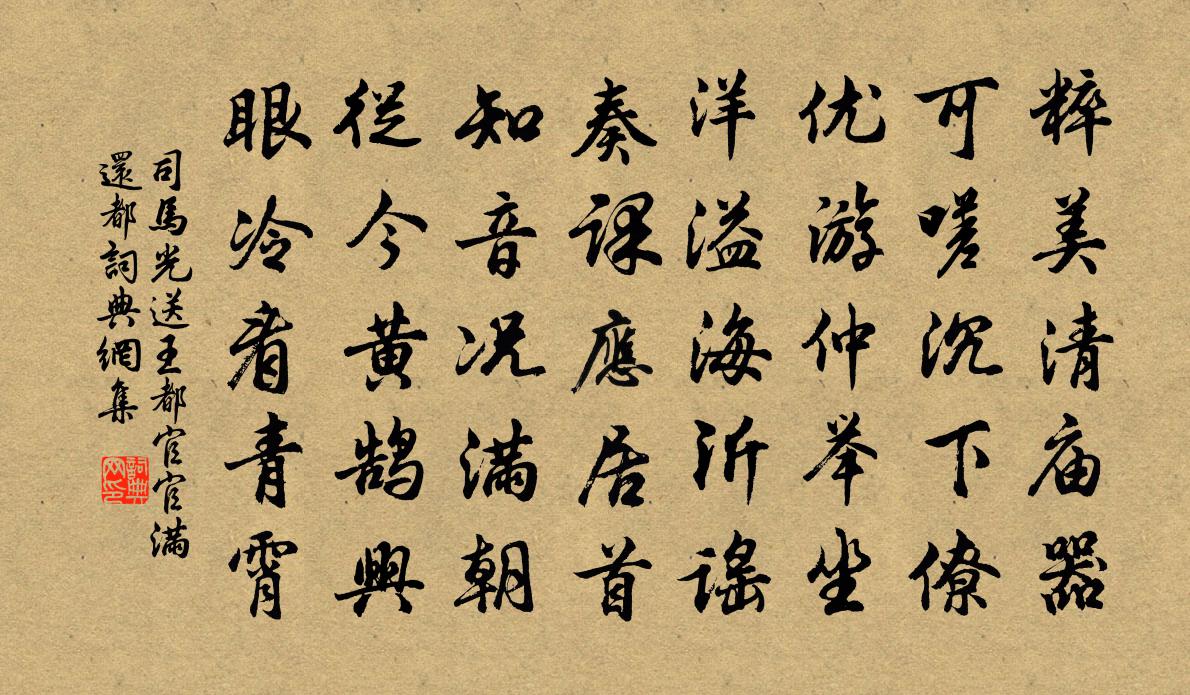 粹美清庙器
可嗟沉下僚
优游仲举坐
洋溢海沂谣
奏课應居首
知音况满朝
從今黄鹄興
眼冷看青霄
司馬光送王都官官满
還都詞典網集
詞典网印